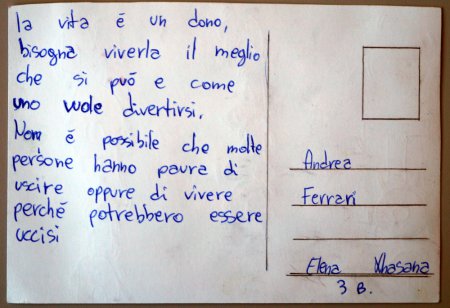 la vita é un dono,
bisogna viverla il meglio
che si puó e come
uno vuole divertirsi.
Non é possibile che molte
persone hanno paura di
uscire oppure di vivere
perché potrebbero essere
uccisi
Andrea
Ferrari
Elena
3 B.